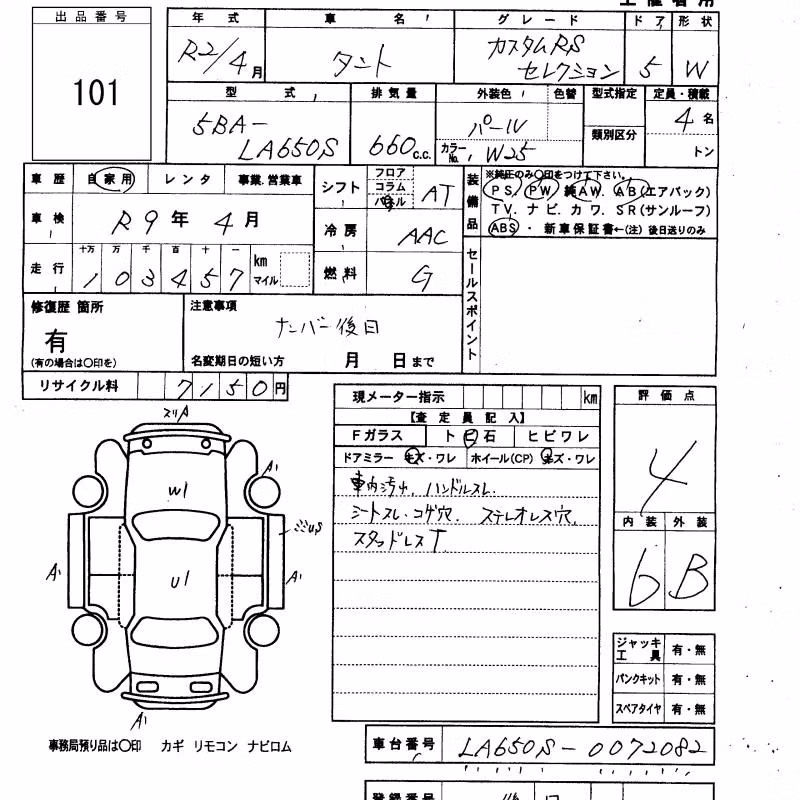 出品番号
101
年式 車名 グレード ドア 形状
R2/4月 タント カスタムRSセレクション 5 W
型式 排気量 外装色 色替 型式指定 定員・積載
5BA-LA650S 660c.c. パール 類別区分 4名
カラーNo. W25 トン
車歴 自家用 レンタ 事業.営業車
車検 R9年4月
走行 十万 万 千 百 十 一
103457 km マイル
シフト フロア コラム パネル AT
冷房 AAC
燃料 G
装備品 ※純正のみ〇印をつけて下さい。
PS. PW. 純AW. AB(エアバック)
TV. ナビ. カワ. SR(サンルーフ)
ABS ・ 新車保証書←(注) 後日送りのみ
セールスポイント
修復歴 箇所
有
(有の場合は〇印を)
注意事項
ナンバー後日
名変期日の短い方 月 日まで
リサイクル料 7150円
現メーター指示 km
【査定員記入】
Fガラス トビ石 ヒビワレ
ドアミラー キズ・ワレ ホイール(CP) キズ・ワレ
車内汚れ. ハンドルスレ.
シートスレ・コゲ穴. ステレオレス穴.
スタッドレスT
評価点
4
内装 外装
6 B
スリA
A'
W1
U1
A'
A'
A'
ジャッキ工具 有・無
パンクキット 有・無
スペアタイヤ 有・無
事務局預り品は〇印 カギ リモコン ナビロム
車台番号 LA650S-0072082
登録番号